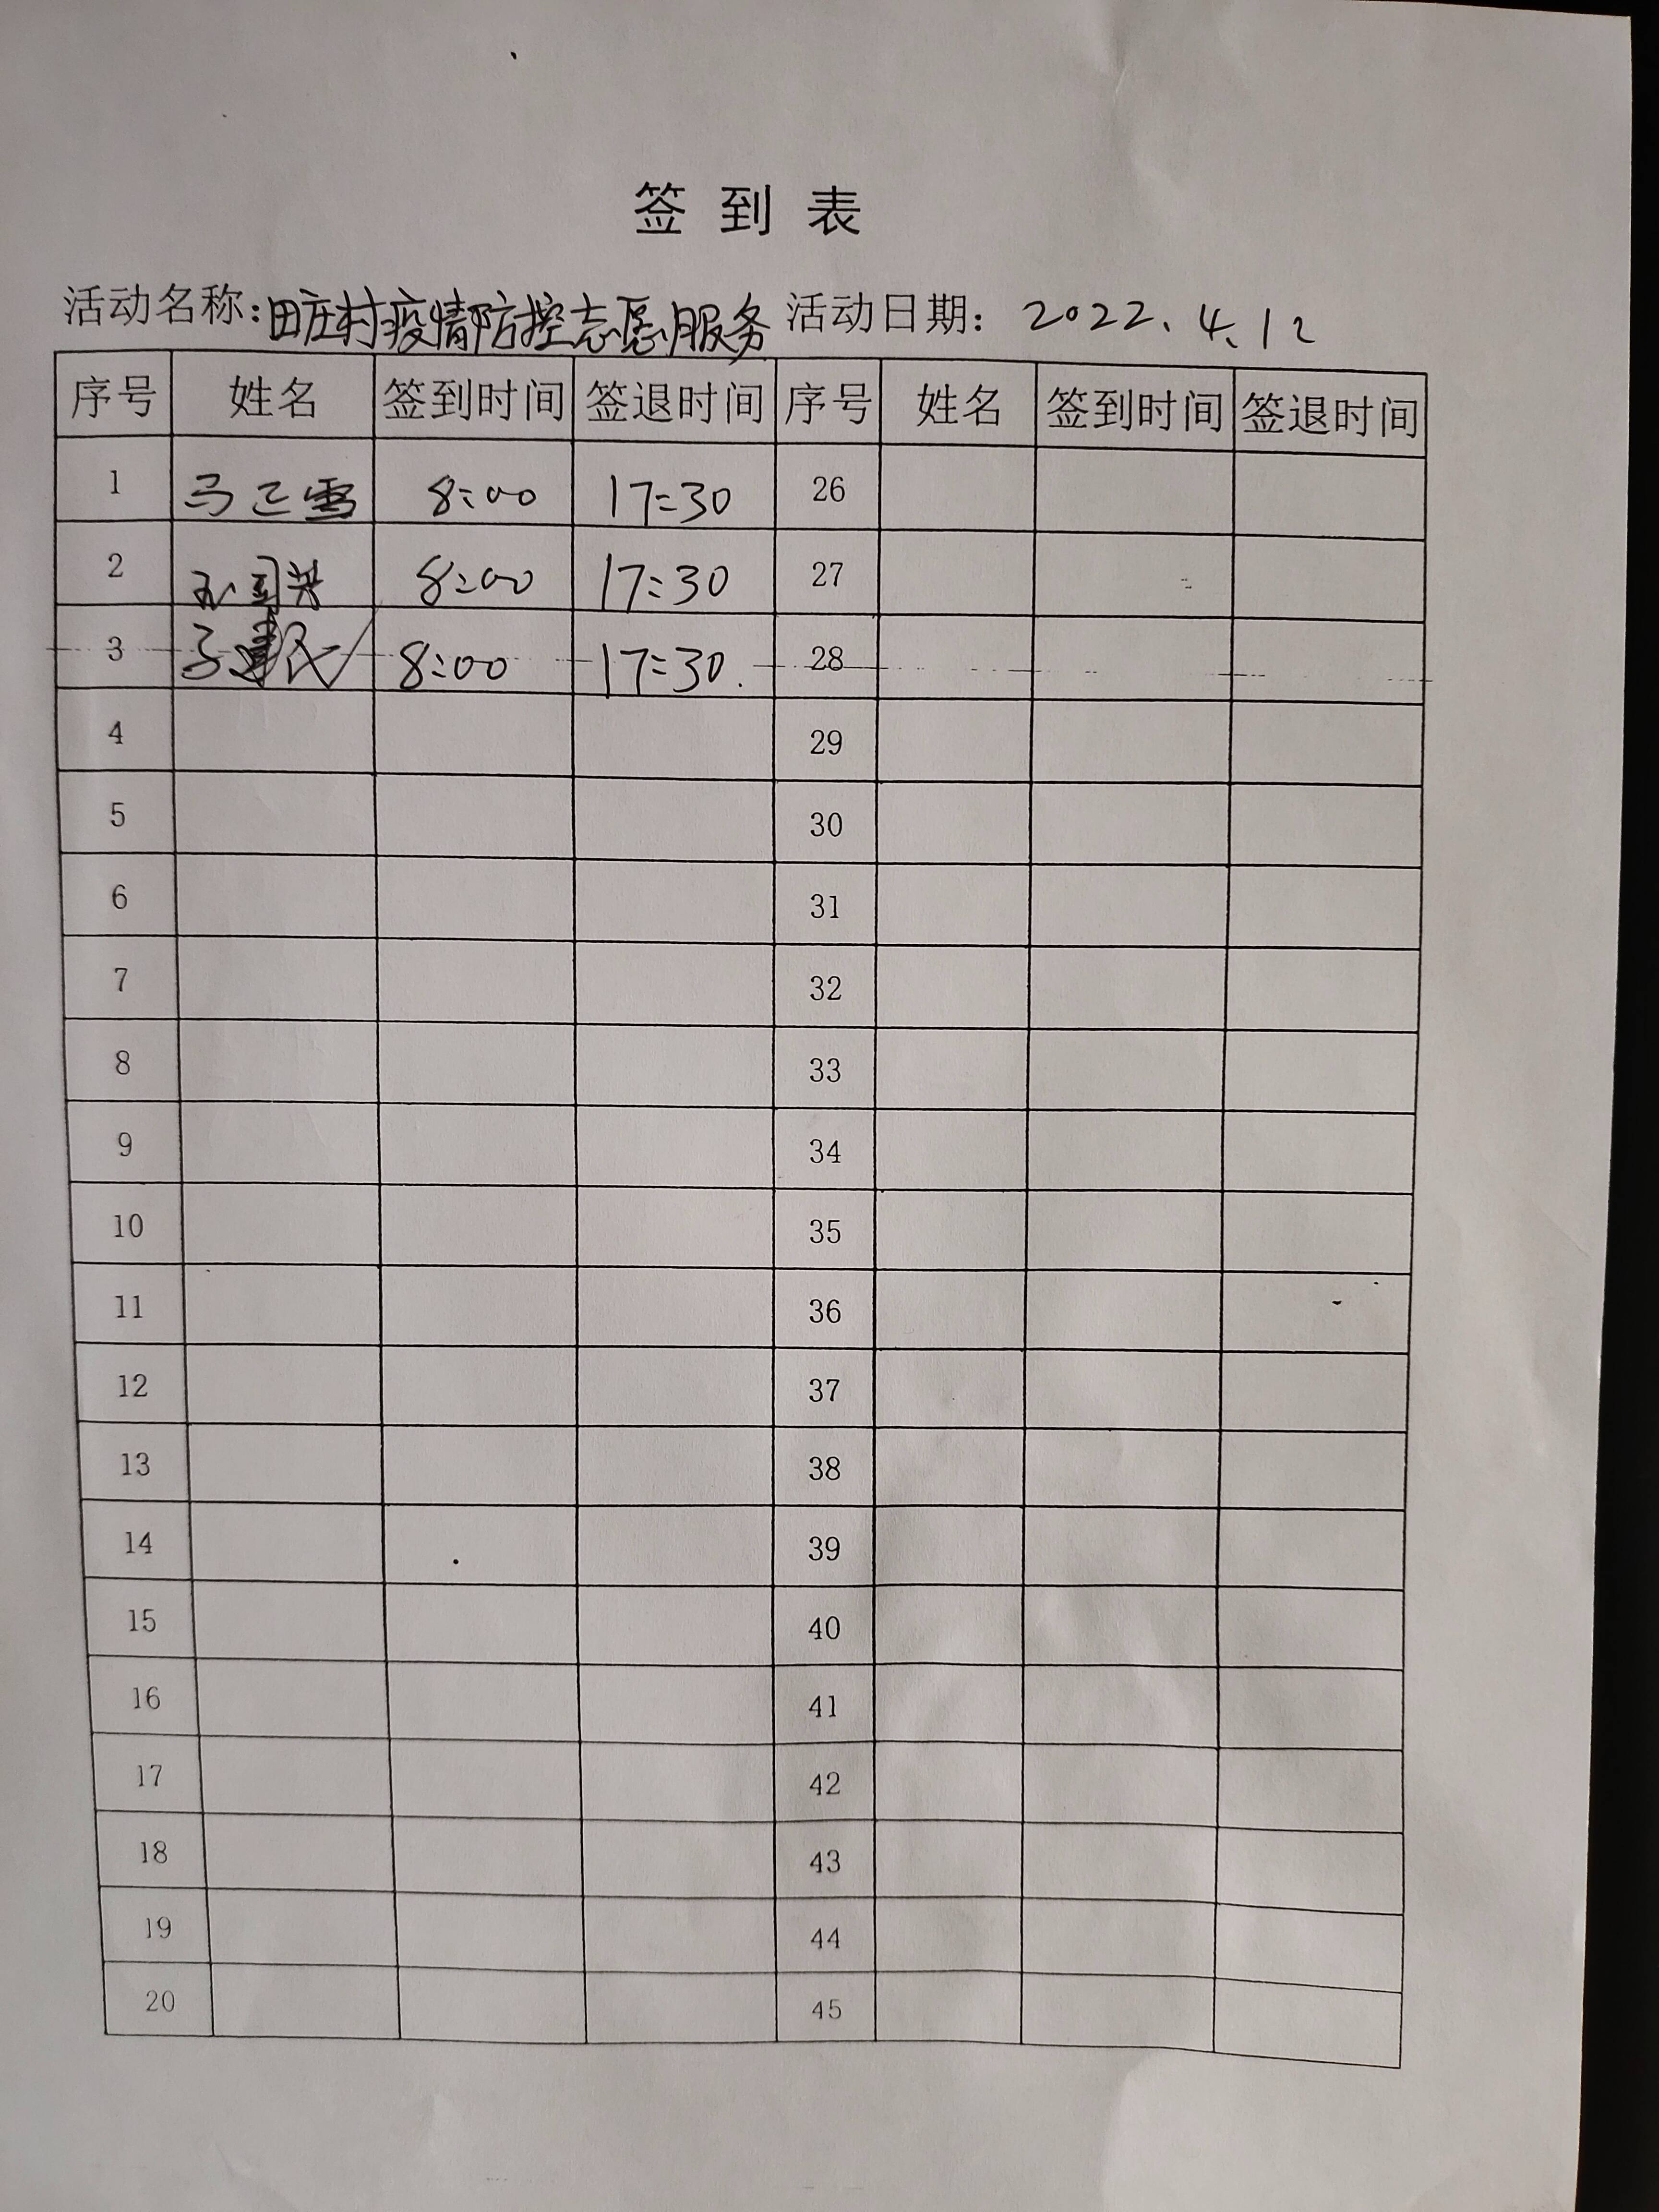 签到表
活动名称:田庄村疫情防控志愿服务 活动日期: 2022.4.12
序号 姓名 签到时间 签退时间 序号 姓名 签到时间 签退时间
1 马 8:00 17:30 26
2 孙国兴 8:00 17:30 27
3 马建民 8:00 17:30. 28
4 29
5 30
6 31
7 32
8 33
9 34
10 35
11 36
12 37
13 38
14 39
15 40
16 41
17 42
18 43
19 44
20 45